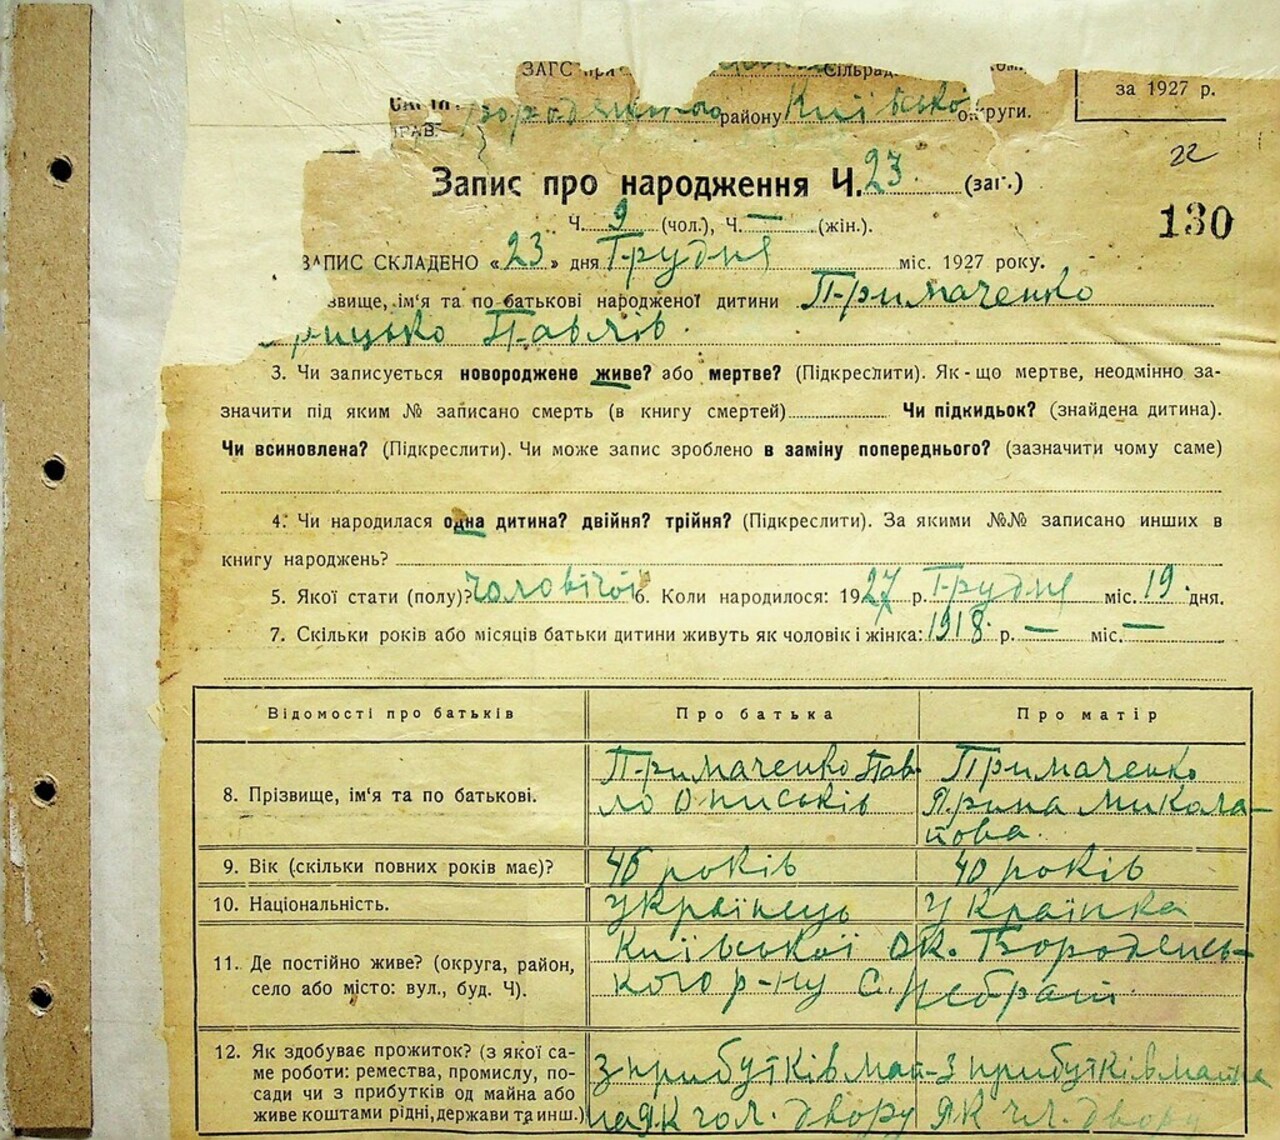 ЗАГС при Сільрад.
району Київської округи.
за 1927 р.
22
Запис про народження Ч. 23. (заг.)
Ч. 9 (чол.), Ч. — (жін.).
130
ЗАПИС СКЛАДЕНО «23» дня Грудня міс. 1927 року.
звище, ім'я та по батькові народженої дитини Примаченко
рицько Павлів.
3. Чи записується новороджене живе? або мертве? (Підкреслити). Як-що мертве, неодмінно за-
значити під яким № записано смерть (в книгу смертей) Чи підкидьок? (знайдена дитина).
Чи всиновлена? (Підкреслити). Чи може запис зроблено в заміну попереднього? (зазначити чому саме)
4. Чи народилася одна дитина? двійня? трійня? (Підкреслити). За якими №№ записано инших в
книгу народжень?
5. Якої стати (полу)? чоловічої 6. Коли народилося: 1927 р. Грудня міс. 19 дня.
7. Скільки років або місяців батьки дитини живуть як чоловік і жінка: 1918 р. — міс. —
Відомості про батьків Про батька Про матір
8. Прізвище, ім'я та по батькові. Примаченко Пав- Примаченко
ло Описьків Ярина Микола-
йова.
9. Вік (скільки повних років має)? 46 років 40 років
10. Національність. українець Українка
11. Де постійно живе? (округа, район, Київської ок. Бородянсь-
село або місто: вул., буд. Ч). кого р-ну С. Небрат
12. Як здобуває прожиток? (з якої са- з прибутків май- з прибутків майна
ме роботи: ремества, промислу, по-
сади чи з прибутків од майна або
живе коштами рідні, держави та инш.) на як гол. двору як чл. двору